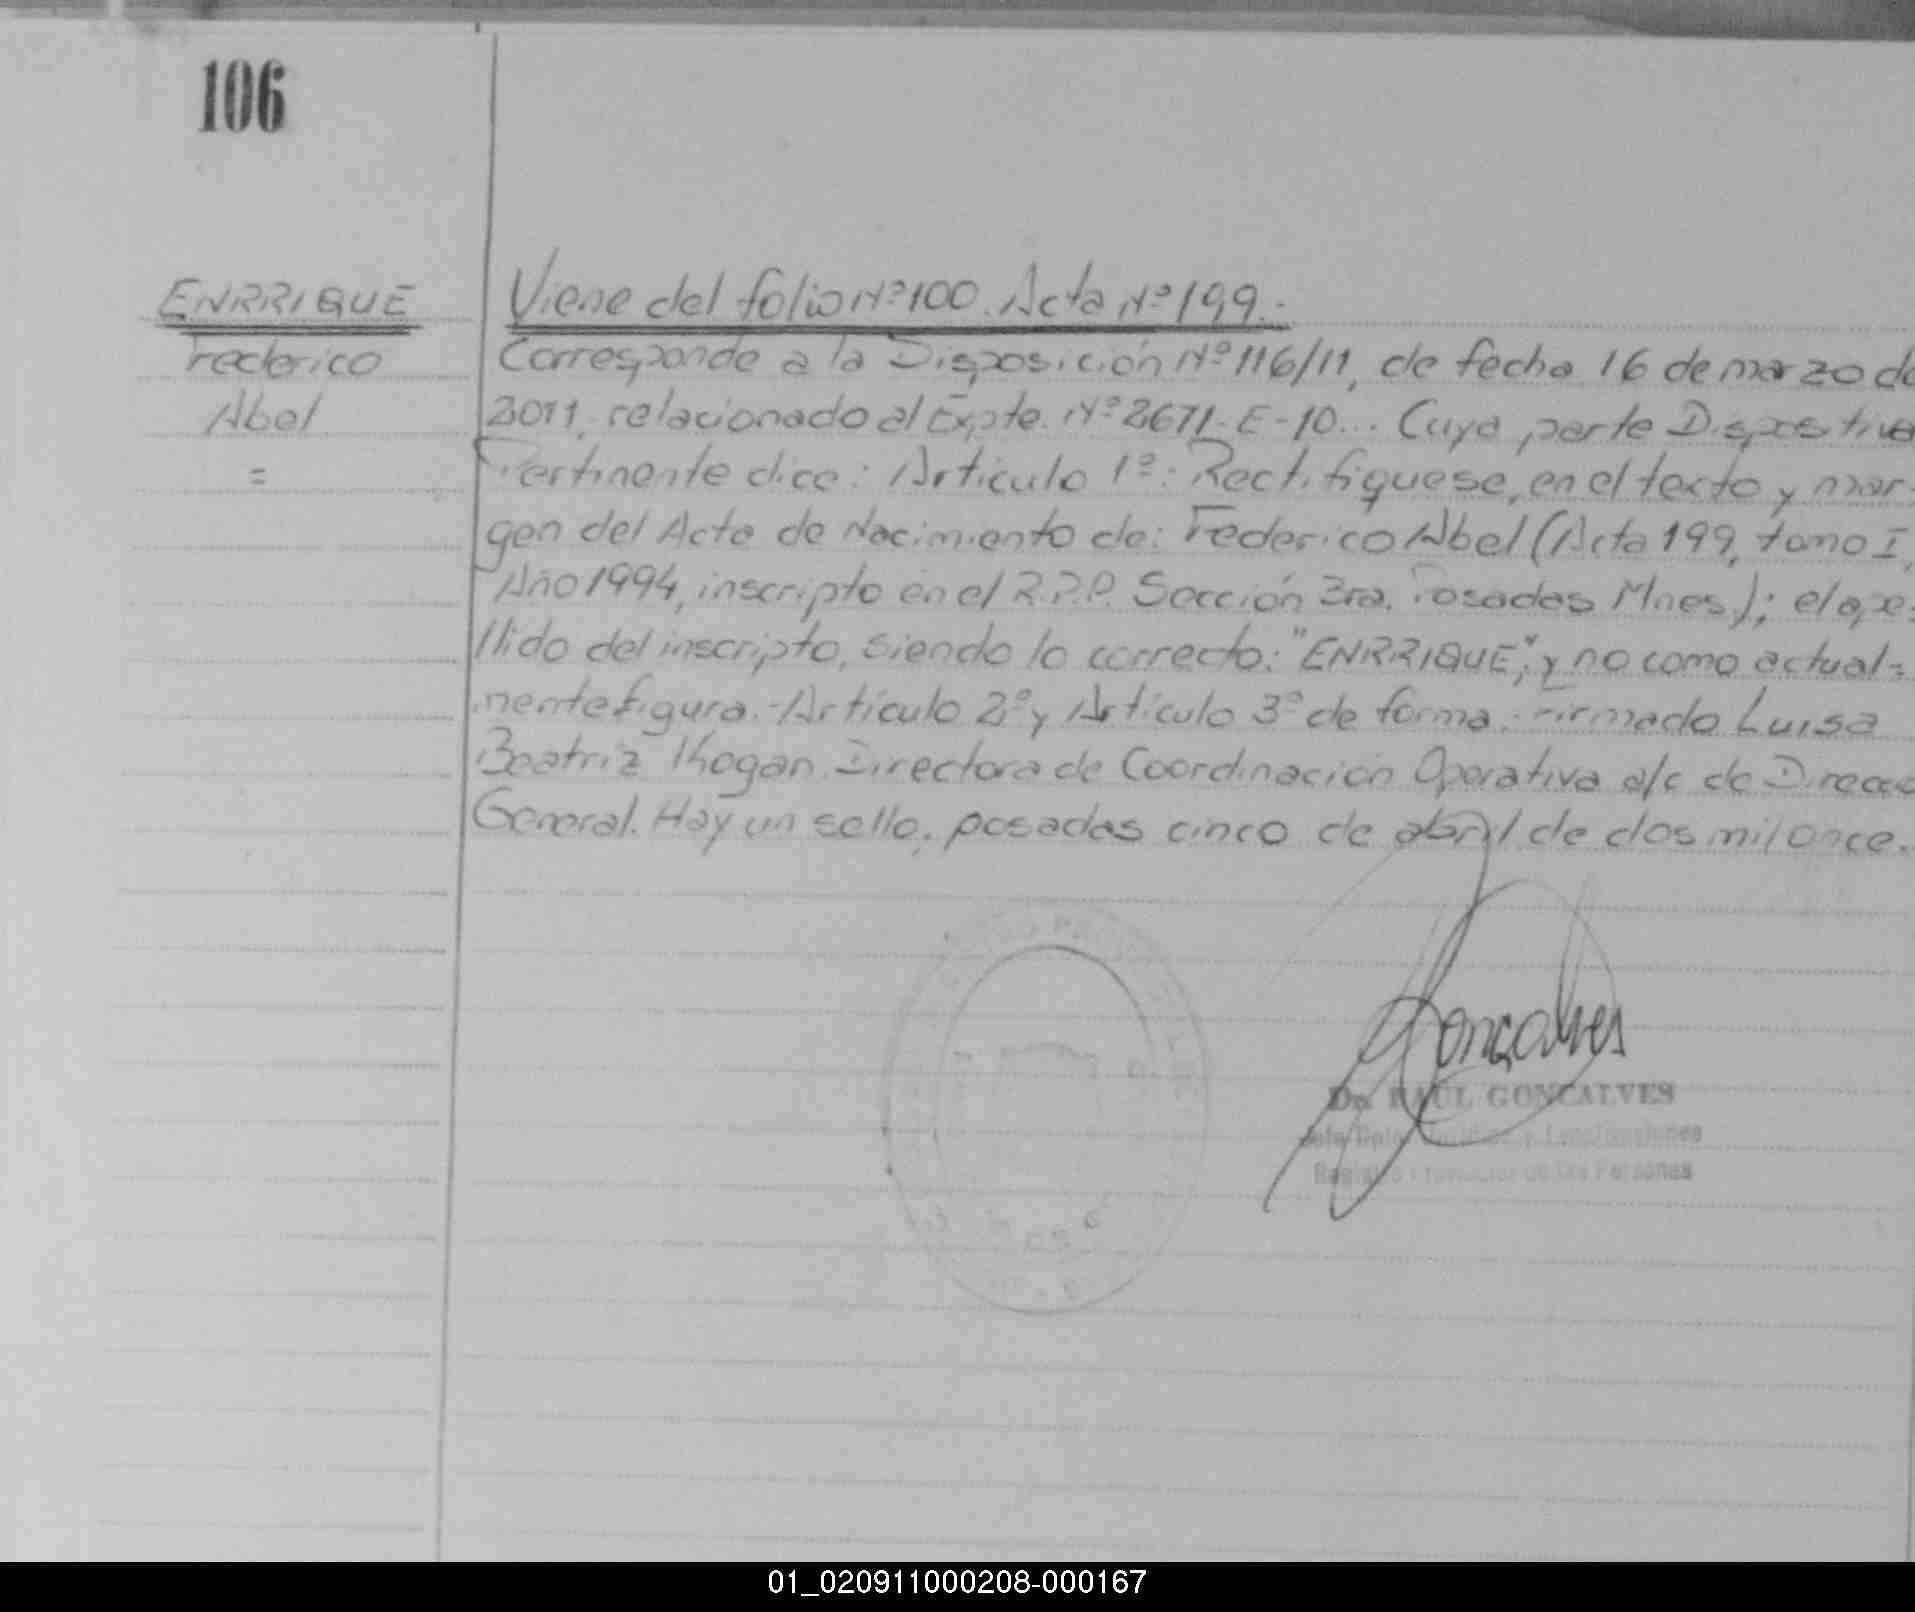 106
ENRRIQUE
Federico
Abel
=
Viene del folio Nº 100. Acta Nº 199.-
Corresponde a la Disposición Nº 116/11, de fecha 16 de marzo de
2011, relacionado al Expte. Nº 2671-E-10... Cuya parte Dispositiva
Pertinente dice: Articulo 1º: Rectifiquese, en el texto y mar-
gen del Acta de Nacimiento de: Federico Abel (Acta 199, tomo I,
Año 1994, inscripto en el R.P.P. Sección 3ra. Posadas Mnes.); el ape=
llido del inscripto, siendo lo correcto: "ENRRIQUE", y no como actual=
mente figura.- Artículo 2º y Artículo 3º de forma.- Firmado Luisa
Beatriz Kogan Directora de Coordinación Operativa a/c de Direcc
General. Hay un sello, posadas cinco de abril de dos mil once.
Goncalves
Dr. RAUL GONCALVES
Registro Provincial de las Personas
01_020911000208-000167